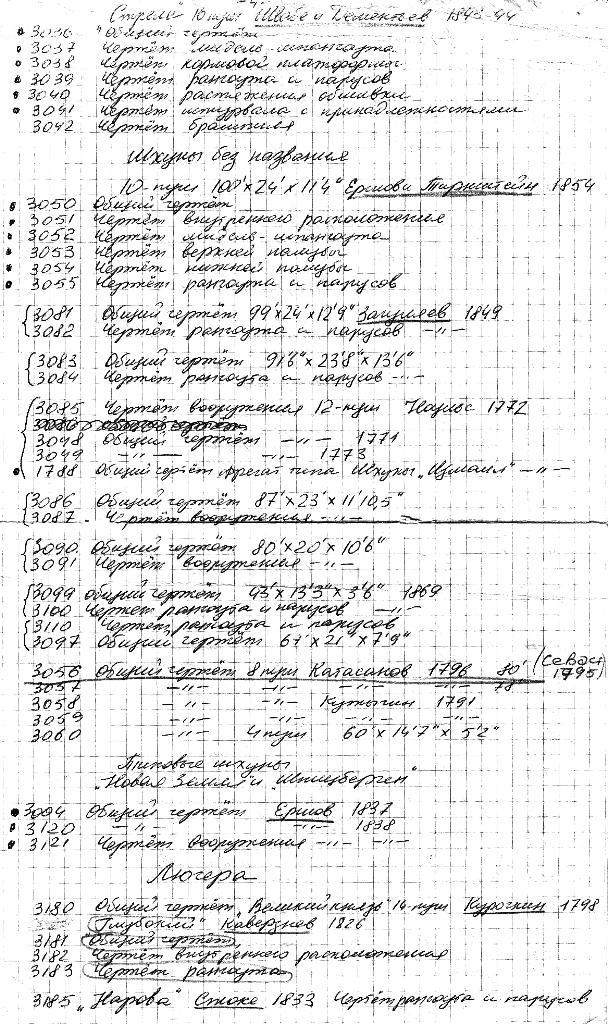 "Стрела" 10 пуш Швабе и Дементьев 1843-44
3036 "Общий чертёж
3037 Чертёж мидель-шпангоута
3038 Чертёж кормовой платформы
3039 Чертёж рангоута и парусов
3040 Чертёж растяжения обшивки
3041 Чертёж штурвала с принадлежностями
3042 Чертёж брашпиля
Шхуны без названия
10-пуш 100'×24'×11'4" Ершов и 1854
3050 Общий чертёж
3051 Чертёж внутреннего расположения
3052 Чертёж мидель-шпангоута
3053 Чертёж верхней палубы
3054 Чертёж нижней палубы
3055 Чертёж рангоута и парусов
3081 Общий чертёж 99'×24'×12'9" 1849
3082 Чертёж рангоута и парусов -"-
3083 Общий чертёж 91'6"×23'8"×13'6"
3084 Чертёж рангоута и парусов -"-
3085 Чертёж вооружения 12-пуш Ноульс 1772
3048 Общий чертёж -"- 1771
3049 -"- -"- 1773
1788 Общий чертёж фрегат типа Шхуны "Измаил" -"-
3086 Общий чертёж 87'×23'×11'10,5"
3087 Чертёж вооружения -"-
3090 Общий чертёж 80'×20'×10'6"
3091 Чертёж вооружения -"-
3099 Общий чертёж 43'×13'3"×3'6" 1869
3100 Чертёж рангоута и парусов -"-
3110 Чертёж рангоута и парусов
3097 Общий чертёж 67'×21'×7'9"
3056 Общий чертёж 8 пуш Катасанов 1796 80' (Севаст 1795)
3057 -"- -"- -"- -"- 78'
3058 -"- -"- Кутыгин 1791
3059 -"- -"- -"- -"-
3060 -"- 4 пуш 60'×14'7"×5'2"
Типовые шхуны
"Новая Земля" и "Шпицберген"
3094 Общий чертёж Ершов 1837
3120 -"- -"- 1838
3121 Чертёж вооружения -"- -"-
Люгера
3180 Общий чертёж "Великий князь" 14-пуш Курочкин 1798
"Глубокий" Каверзнев 1826
3181 Общий чертёж
3182 Чертёж внутреннего расположения
3183 Чертёж рангоута
3185 "Нарова" Стоке 1833 Чертёж рангоута и парусов